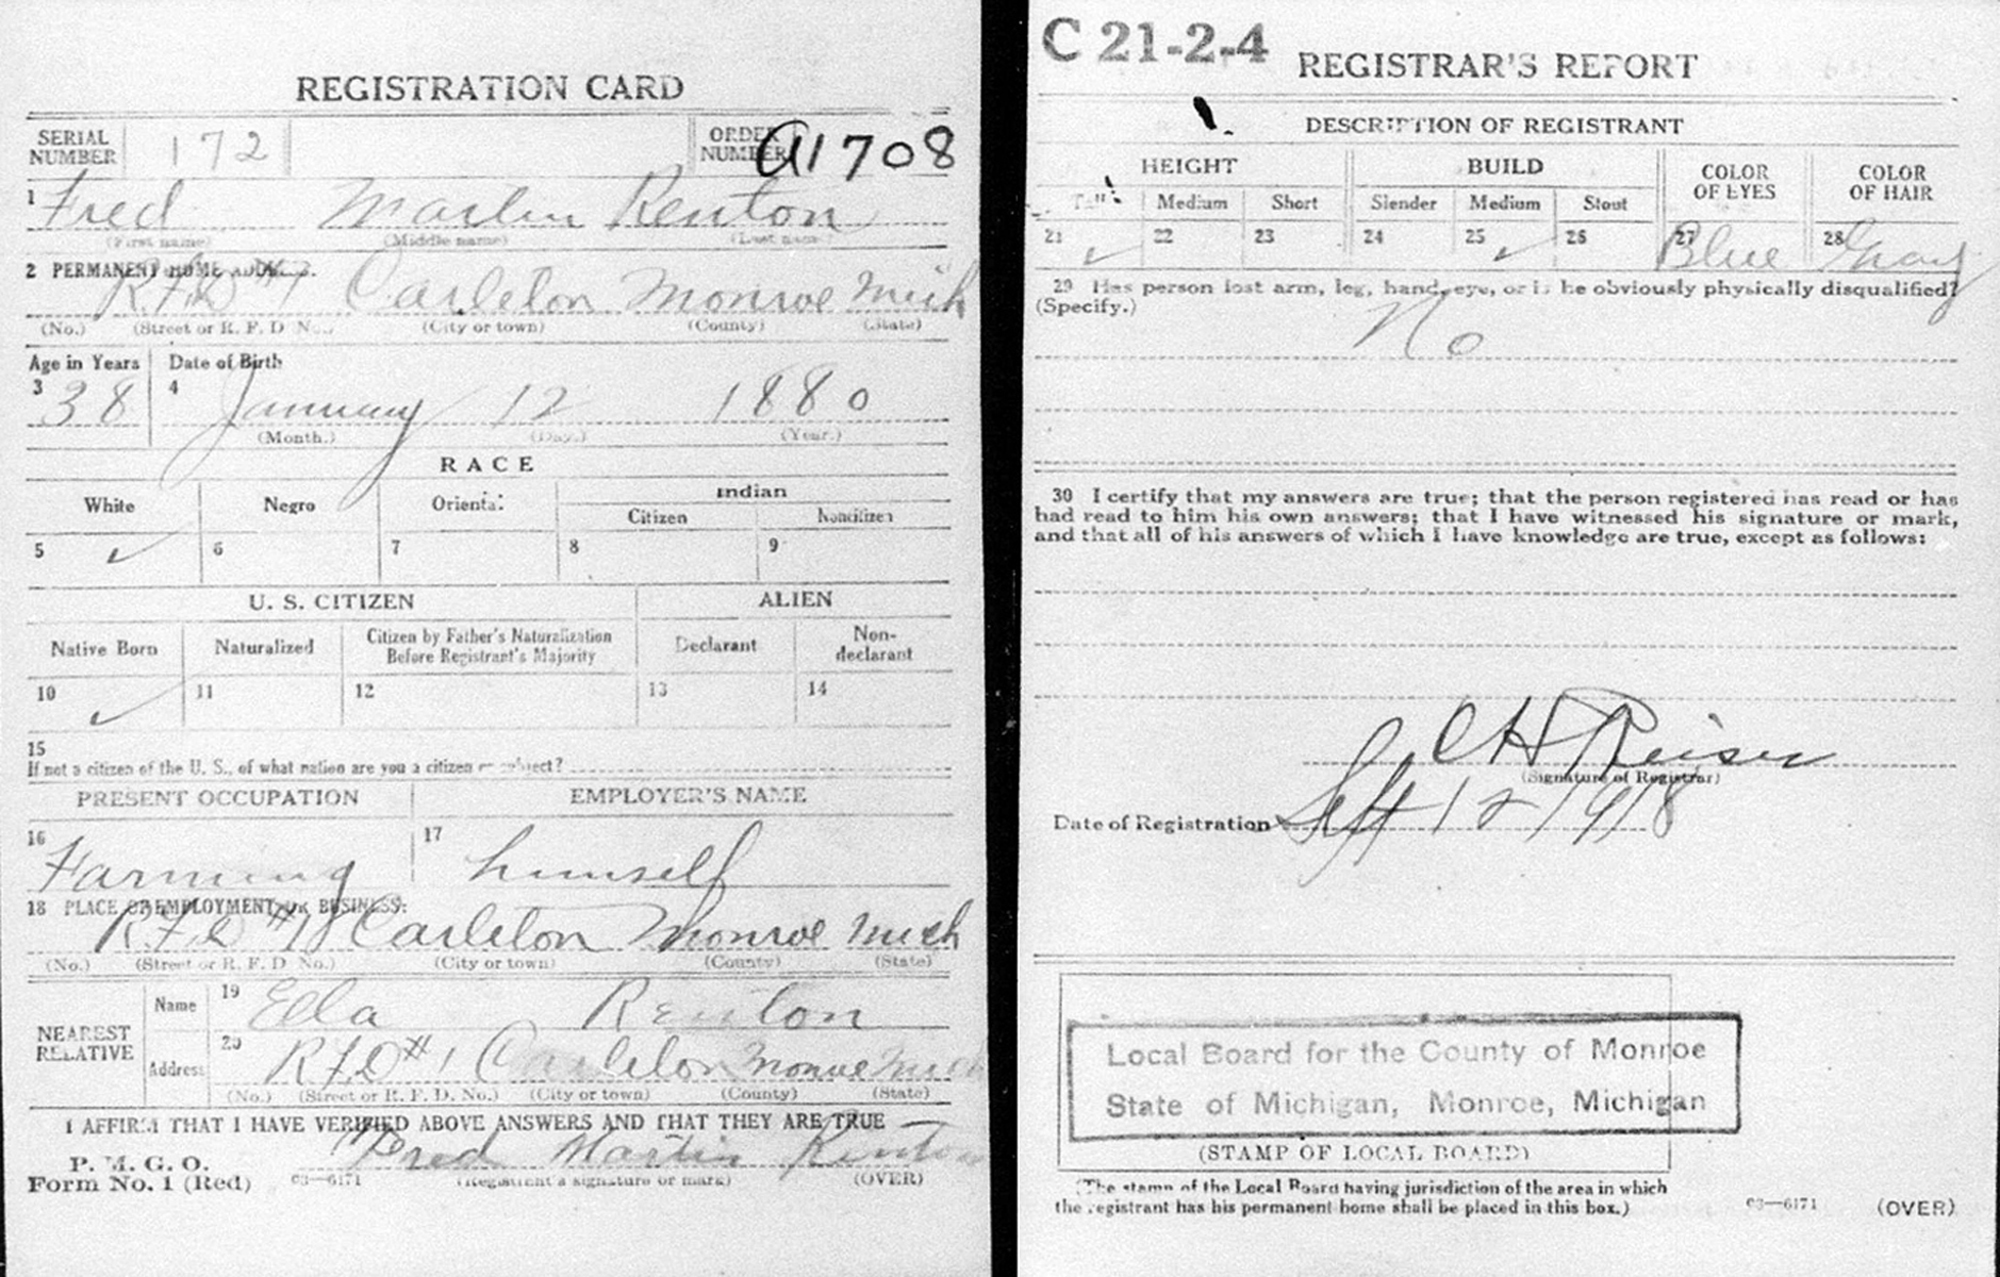 REGISTRATION CARD
SERIAL NUMBER 172 ORDER NUMBER A1708
1 Fred Martin Renton
(First name) (Middle name) (Last name)
2 PERMANENT HOME ADDRESS:
R.F.D #1 Carleton Monroe Mich
(No.) (Street or R. F. D No.) (City or town) (County) (State)
Age in Years Date of Birth
3 38 4 January 12 1880
(Month.) (Day.) (Year.)
RACE
White Negro Oriental Indian
Citizen Noncitizen
5 ✓ 6 7 8 9
U. S. CITIZEN ALIEN
Native Born Naturalized Citizen by Father's Naturalization Before Registrant's Majority Declarant Non-declarant
10 ✓ 11 12 13 14
15
If not a citizen of the U. S., of what nation are you a citizen or subject?
PRESENT OCCUPATION EMPLOYER'S NAME
16 Farming 17 himself
18 PLACE OF EMPLOYMENT OR BUSINESS:
R.F.D #1 Carleton Monroe Mich
(No.) (Street or R. F. D No.) (City or town) (County) (State)
NEAREST RELATIVE
Name 19 Ella Renton
Address 20 R.F.D #1 Carleton Monroe Mich
(No.) (Street or R. F. D. No.) (City or town) (County) (State)
I AFFIRM THAT I HAVE VERIFIED ABOVE ANSWERS AND THAT THEY ARE TRUE
P. M. G. O.
Form No. 1 (Red) 03—6171 Fred Martin Renton
(Registrant's signature or mark) (OVER)
C 21-2-4 REGISTRAR'S REPORT
DESCRIPTION OF REGISTRANT
HEIGHT BUILD COLOR OF EYES COLOR OF HAIR
Tall Medium Short Slender Medium Stout
21 ✓ 22 23 24 25 ✓ 26 27 Blue 28 Gray
29 Has person lost arm, leg, hand, eye, or is he obviously physically disqualified?
(Specify.) No
30 I certify that my answers are true; that the person registered has read or has
had read to him his own answers; that I have witnessed his signature or mark,
and that all of his answers of which I have knowledge are true, except as follows:
C H Reiser
(Signature of Registrar)
Date of Registration Sept 12 1918
Local Board for the County of Monroe
State of Michigan, Monroe, Michigan
(STAMP OF LOCAL BOARD)
(The stamp of the Local Board having jurisdiction of the area in which
the registrant has his permanent home shall be placed in this box.)
03—6171 (OVER)